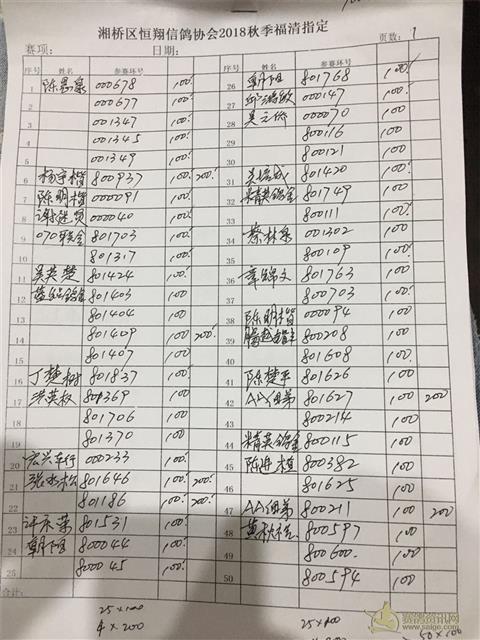 湘桥区恒翔信鸽协会2018秋季福清指定
赛项: 日期: 页数: 1
序号 姓名 参赛环号 序号 姓名 参赛环号
1 000678 100
2 000677 100
3 001347 100
4 001345 100
5 001349 100
6 杨宇楷 800937 100 200
7 陈明楷 000091 100
8 000040 100
9 070联合 801703 100
10 801317 100
11 吴英楚 801424 100
12 801403 100
13 801404 100
14 801409 100 200
15 801407 100
16 丁楚树 801837 100
17 洪英权 801369 100
18 801706 100
19 801370 100
20 宏兴车行 000233 100
21 张水松 801646 100 200
22 801186 100 200
23 许庆荣 801531 100
24 朝阳 800044 100
25 800045 100
26 朝阳 801768 100
27 000147 100
28 吴元侨 000070 100
29 800116 100
30 800121 100
31 801420 100
32 精英鸽舍 801749 100
33 800111 100
34 蔡林泉 001302 100
35 800109 100
36 章锦文 801763 100
37 800703 100
38 陈明楷 000094 100
39 800208 100
40 801608 100
41 陈楚平 801626 100
42 AA组弟 801627 100 200
43 800214 100
44 精英鸽舍 800115 100
45 800382 100
46 801625 100
47 AA组弟 800211 100 200
48 800597 100
49 800600 100
50 800594 100
合计:
25×100 25×100
4×200 50×100
赛鸽资讯网
www.saige.com